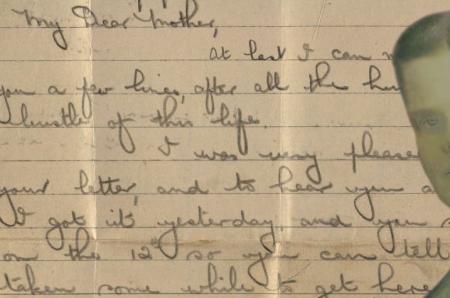 My Dear Mother,
at last I can
you a few lines, after all the
bustle of this life.
I was very please
your letter, and to hear you a
I got it yesterday, and you s
on the 12th so you can tell
taken some while to get here